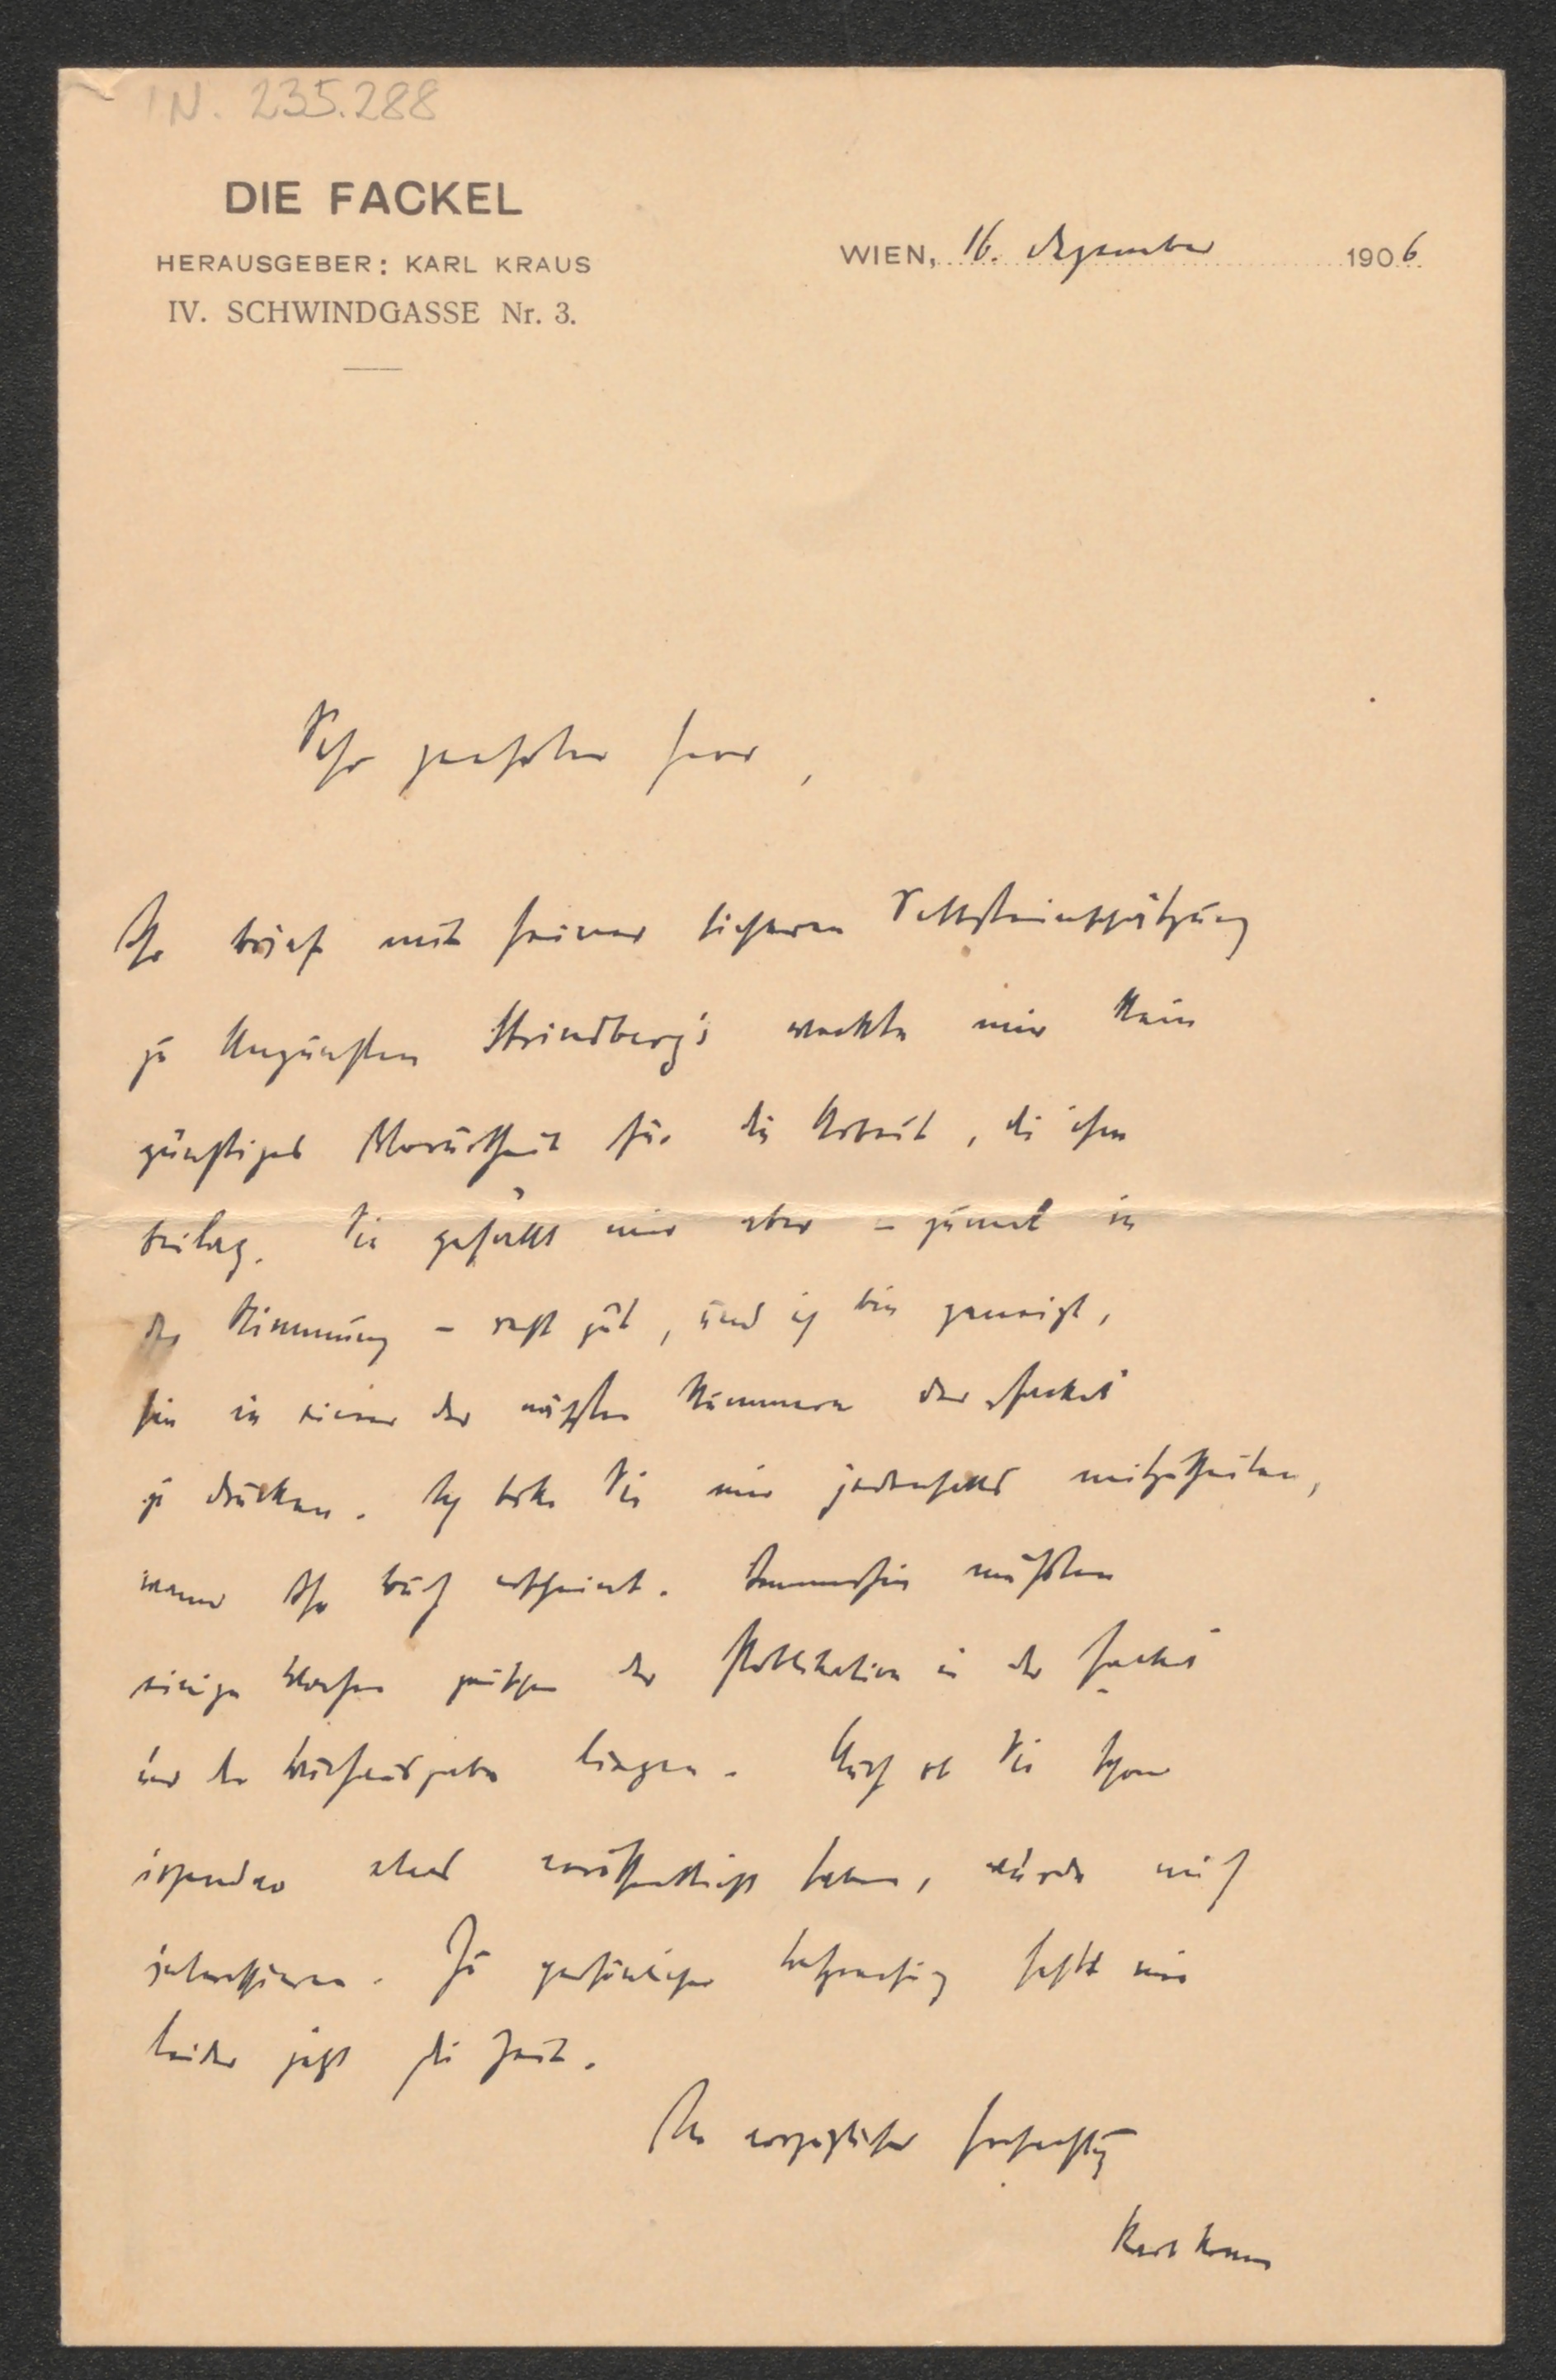 IN. 235.288
DIE FACKEL
HERAUSGEBER: KARL KRAUS
IV. SCHWINDGASSE Nr. 3.
WIEN, 16. Dezember 1906
Sehr geehrter Herr,
Ihr Brief mit seiner sicheren Selbsteinschätzung
zu Ungunsten Strindberg's weckte mir kein
günstiges Vorurtheil für die Arbeit, die ihm
beilag. Sie gefällt mir aber – zumal in
der Stimmung – recht gut, und ich bin geneigt,
sie in einer der nächsten Nummern der „Fackel“
zu drucken. Ich bitte Sie mir jedenfalls mitzutheilen,
wann Ihr Buch erscheint. Immerhin müßten
einige Wochen zwischen der Publikation in der Fackel
und der Buchausgabe liegen. Auch ob Sie schon
irgendwo etwas veröffentlicht haben, würde mich
interessieren. Zu persönlicher Besprechung fehlt mir
leider jetzt die Zeit.
In vorzüglicher Hochachtung
Karl Kraus